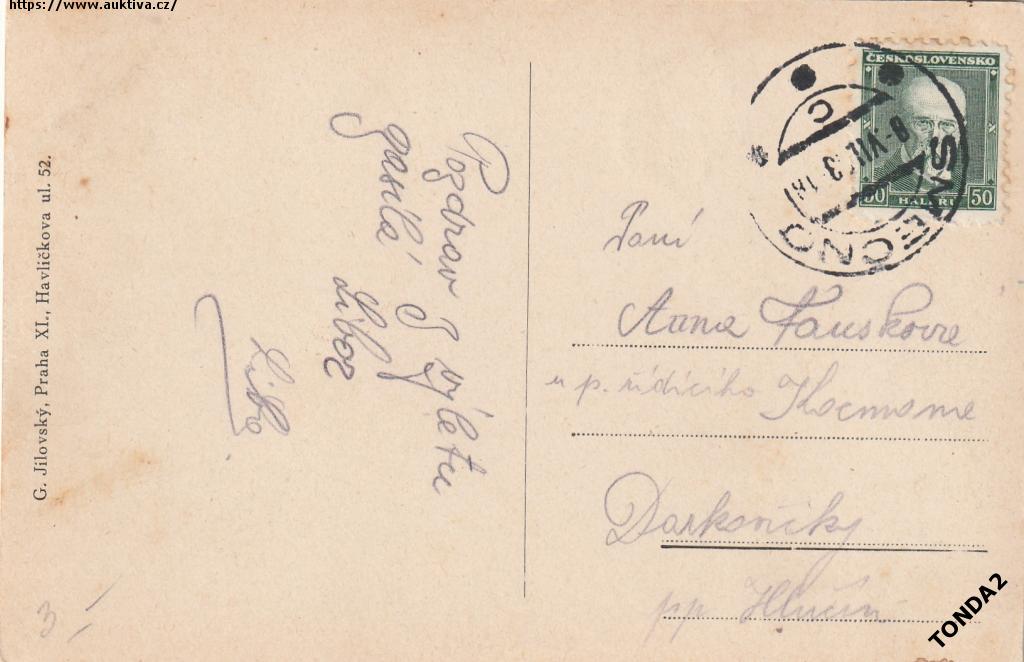 https://www.auktiva.cz/
G. Jílovský, Praha XI., Havlíčkova ul. 52.
Pozdrav z výletu
posílá
Libor
Liba
ČESKOSLOVENSKO
50 HALÉŘŮ 50
SMEČNO
C
Paní
Anna
u p. řídícího
Darkovičky
pp. Hlučín
3/
TONDA2